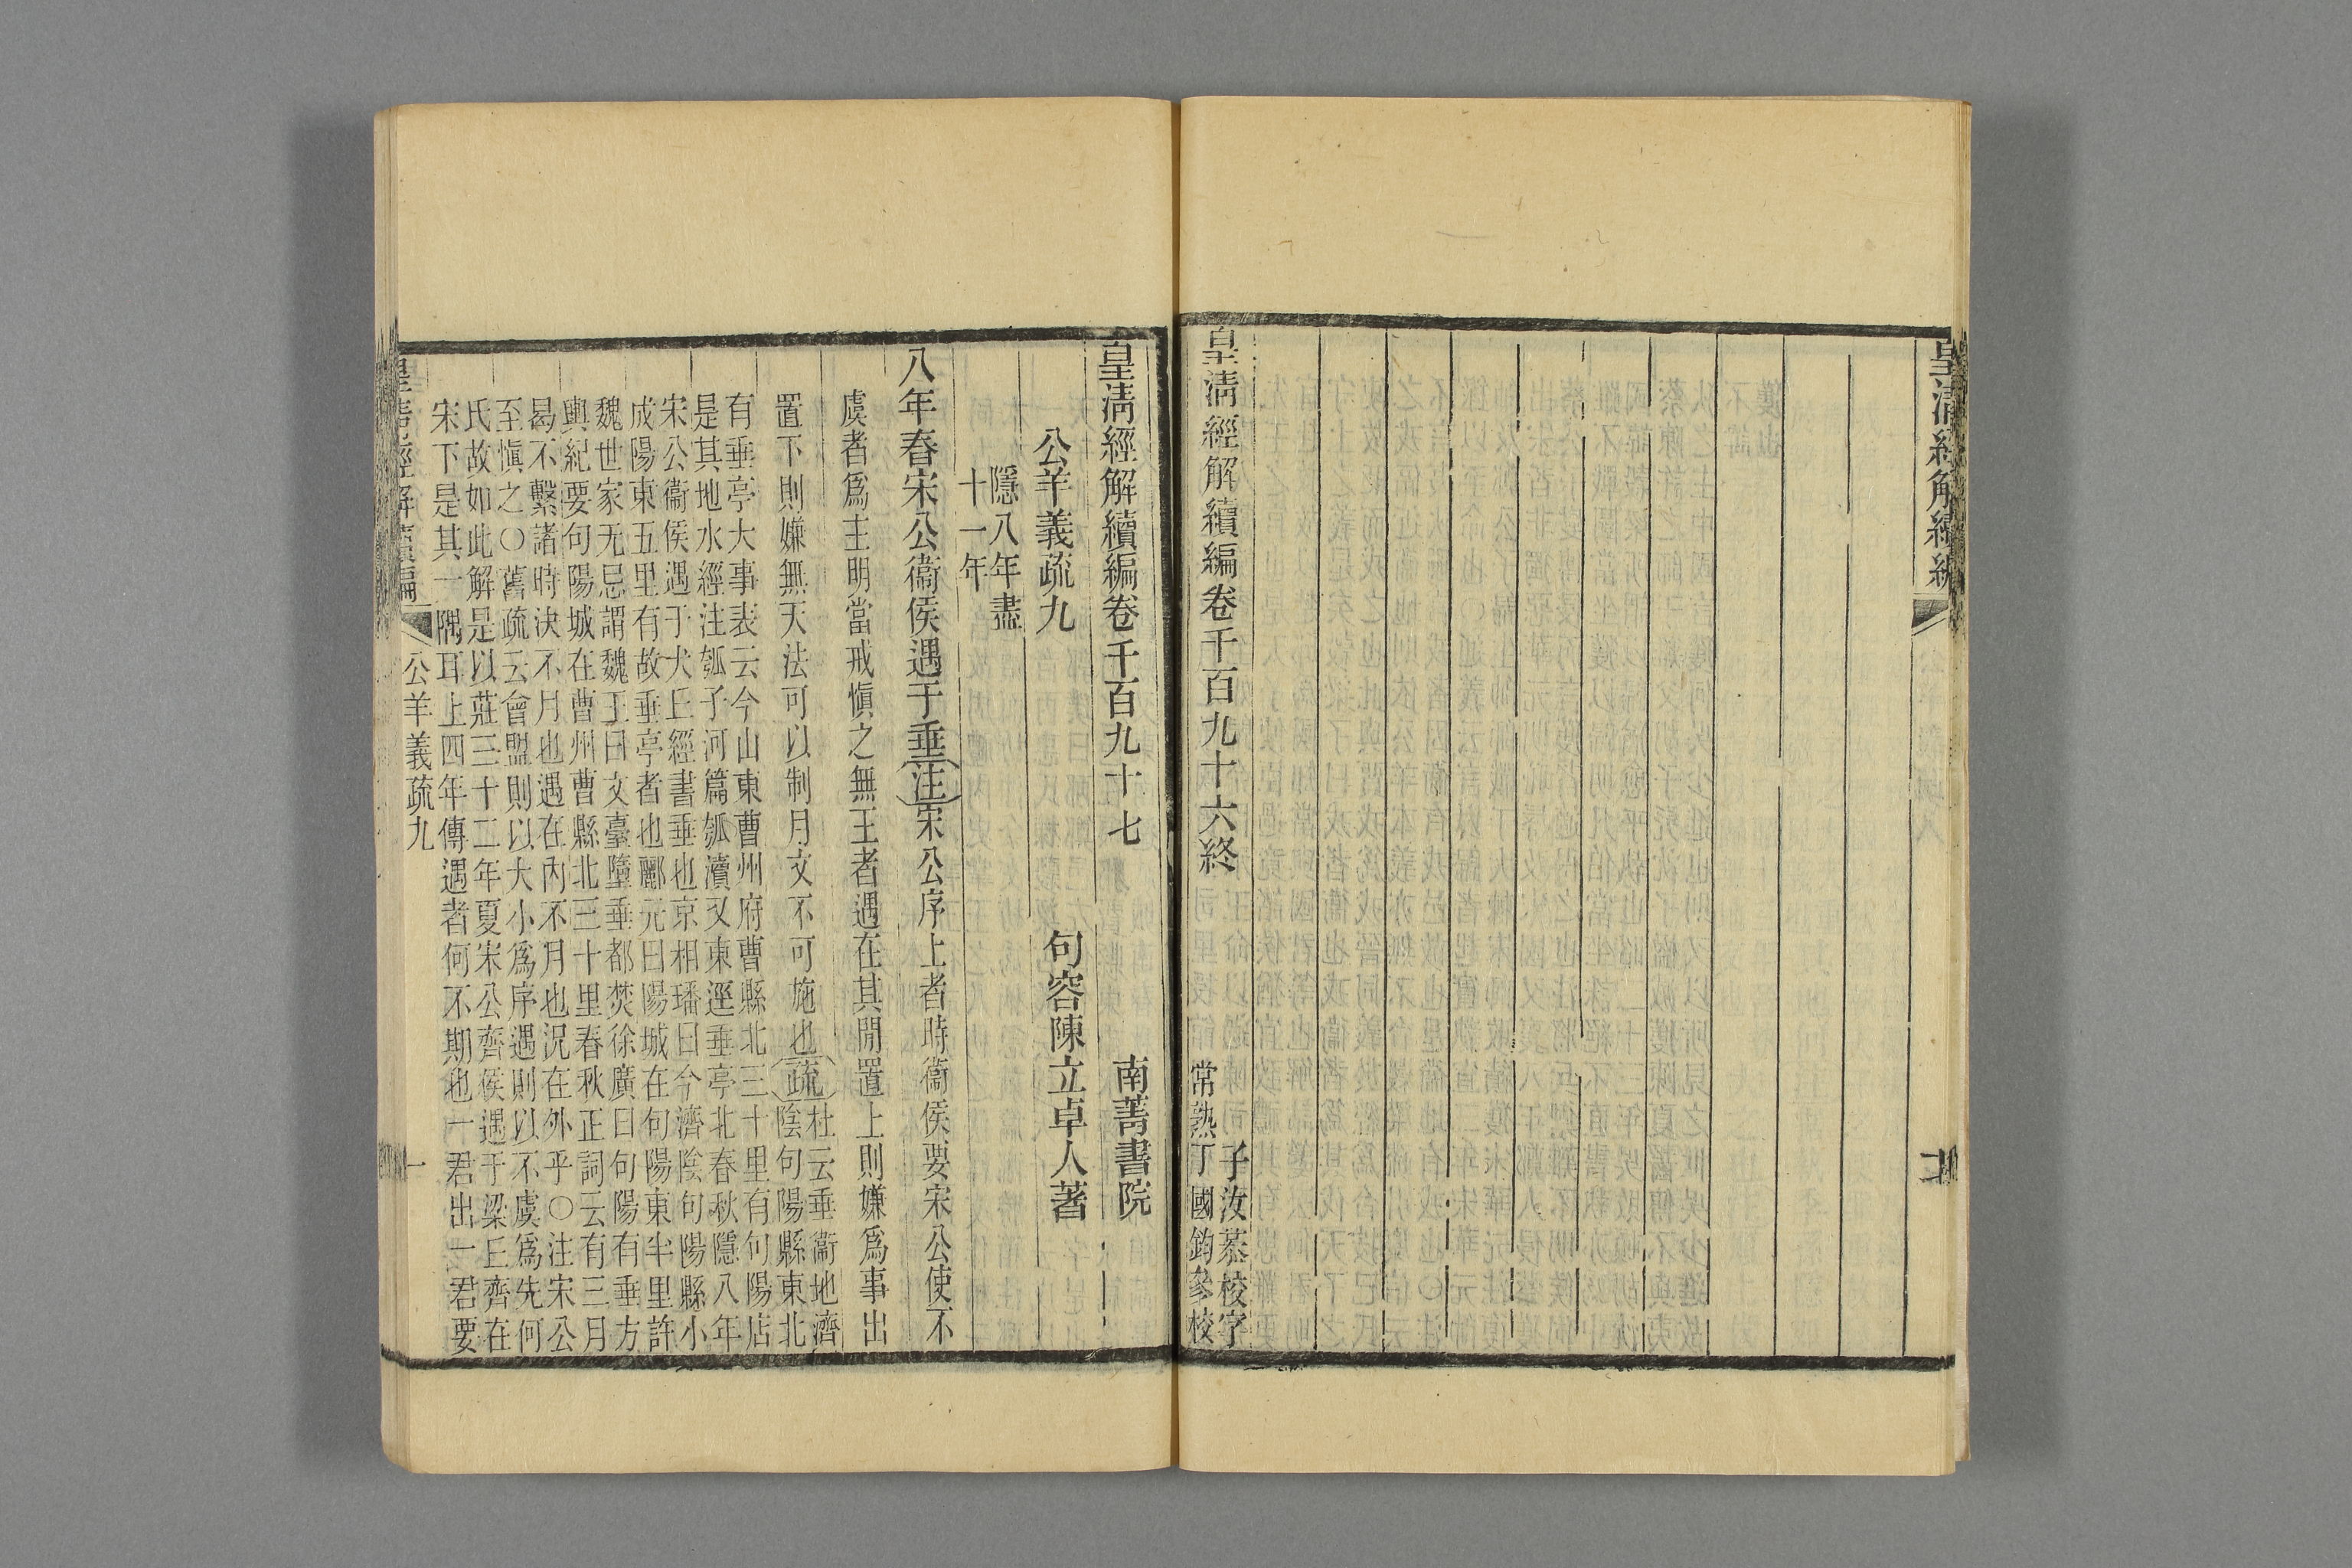 皇清經解續編
七
皇清經解續編卷千百九十六終
子汝恭校字
常熟丁國鈞參校
皇清經解續編卷千百九十七
南菁書院
公羊義疏九
句容陳立卓人著
隱八年盡
十一年
八年春宋公衞侯遇于垂注宋公序上者時衞侯要宋公使不
虞者爲主明當戒愼之無王者遇在其閒置上則嫌爲事出
置下則嫌無天法可以制月文不可施也疏
杜云垂衞地濟
陰句陽縣東北
有垂亭大事表云今山東曹州府曹縣北三十里有句陽店
是其地水經注瓠子河篇瓠瀆又東逕垂亭北春秋隱八年
宋公衞侯遇于犬丘經書垂也京相璠曰今濟陰句陽縣小
成陽東五里有故垂亭者也酈元曰陽城在句陽東半里許
魏世家无忌謂魏王曰文臺墮垂都焚徐廣曰句陽有垂方
輿紀要句陽城在曹州曹縣北三十里春秋正詞云有三月
曷不繫諸時決不月也遇在內不月也況在外乎○注宋公
至愼之○舊疏云會盟則以大小爲序遇則以不虞爲先何
氏故如此解是以莊三十二年夏宋公齊侯遇于梁丘齊在
宋下是其一隅耳上四年傳遇者何不期也一君出一君要
皇清經解續編
公羊義疏九
一